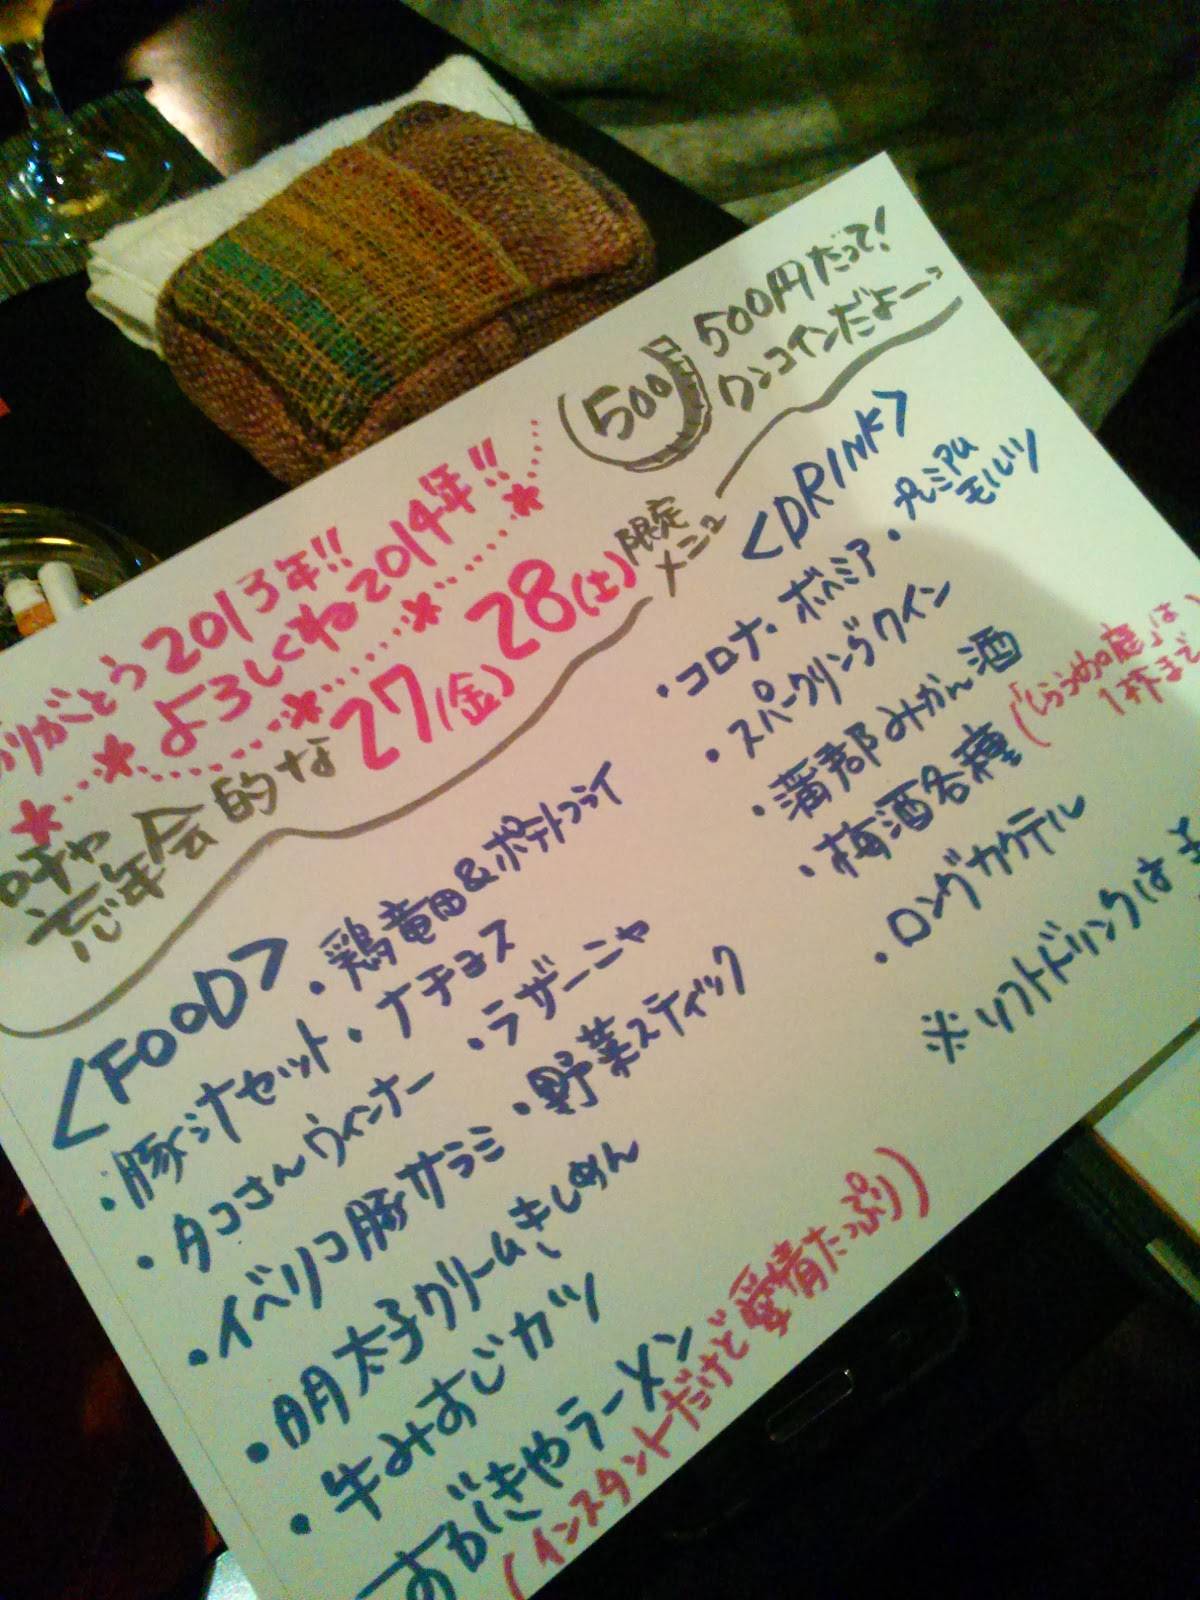 りがとう2013年!!
よろしくね2014年!!
500 500円だって!
ワンコインだよーっ
ロチャ
忘年会的な27(金)28(土)限定
メニュー
<FOOD>
・鶏竜田&ポテトフライ
・豚汁セット・ナチョス
・タコさんウィンナー・ラザーニャ
・イベリコ豚サラミ・野菜スティック
・明太子クリームきしめん
・牛みすじカツ
すがきやラーメン
(インスタントだけど愛情たっぷり)
<DRINK>
・コロナ・ボヘミア・プレミアム
モルツ
・スパークリングワイン
・蒲郡みかん酒
・梅酒各種(「しらうめの庭」は
1杯まで
・ロングカクテル
※ソフトドリンクは